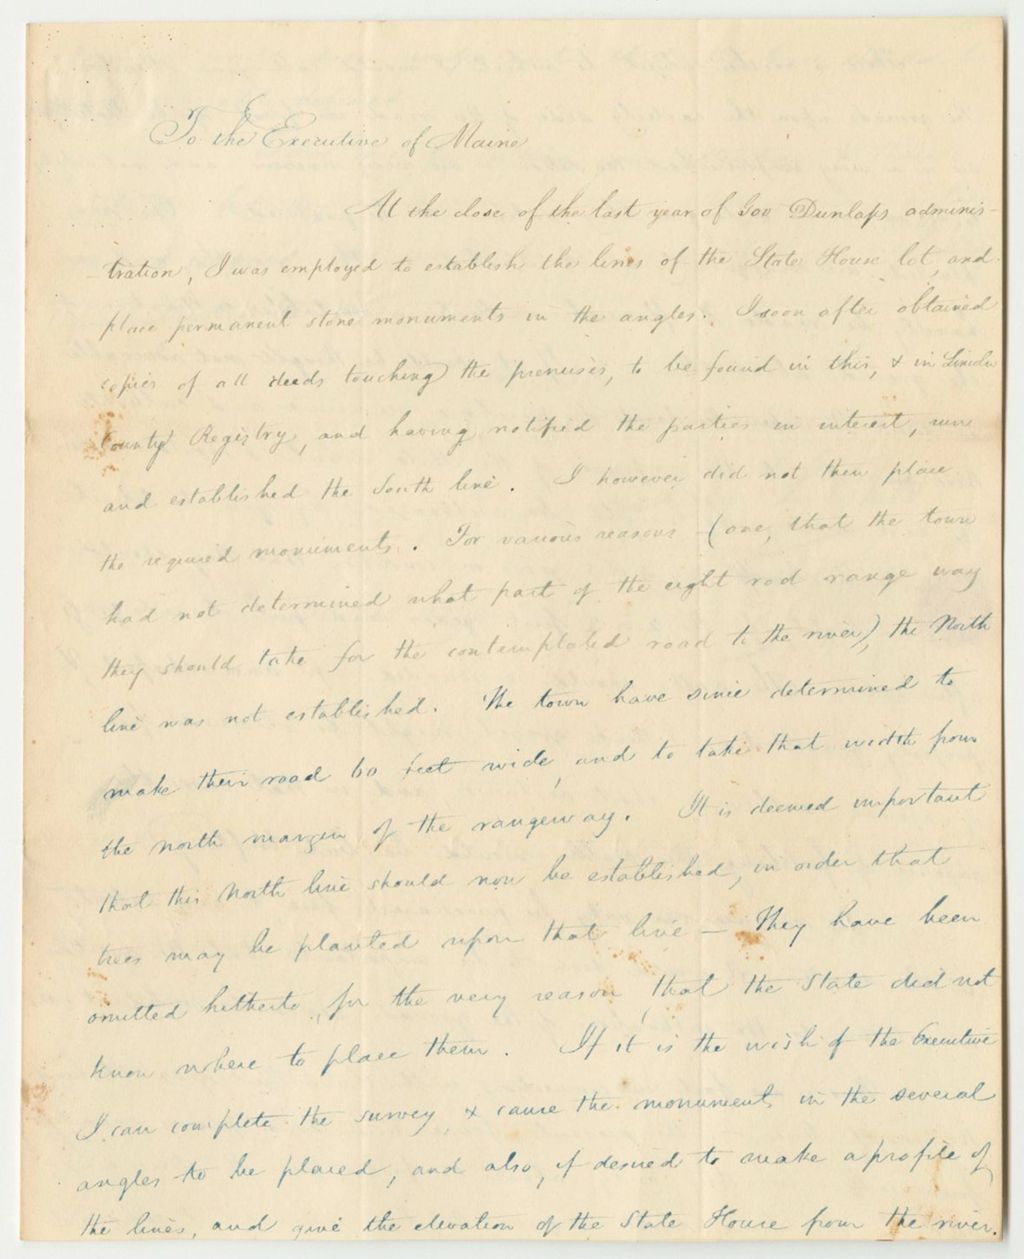 To the Executive of Maine
At the close of the last year of Gov Dunlaps adminis-
tration, I was employed to establish the lines of the State House lot, and
place permanent stone monuments in the angles. I soon after obtained
copies of all deeds touching the premises, to be found in this, & in Lincoln
County Registry, and having notified the parties in interest, run
and established the South line. I however did not then place
the required monuments. For various reasons (one, that the town
had not determined what part of the eight rod range way
they should take for the contemplated road to the river), the North
line was not established. The town have since determined to
make their road 60 feet wide, and to take that width from
the north margin of the rangeway. It is deemed important
that this North line should now be established, in order that
trees may be planted upon that line — They have been
omitted hitherto, for the very reason, that the State did not
know where to place them. If it is the wish of the Executive
I can complete the survey, & cause the monuments in the several
angles to be placed, and also, if desired to make a profile of
the lines, and give the elevation of the State House from the river.